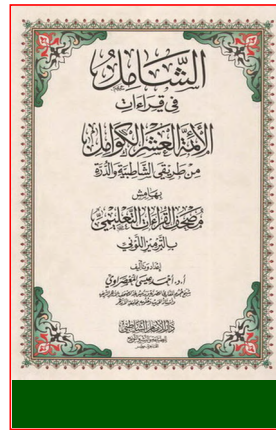 الشامل
في قراءات
الأئمة العشر الكوامل
من طريقي الشاطبية والدرة
بهامش
مصحف القراءات التعليمي
بالترميز اللوني
إعداد وتأليف
أ.د. أحمد عيسى المعصراوي
دار الإمام الشاطبي